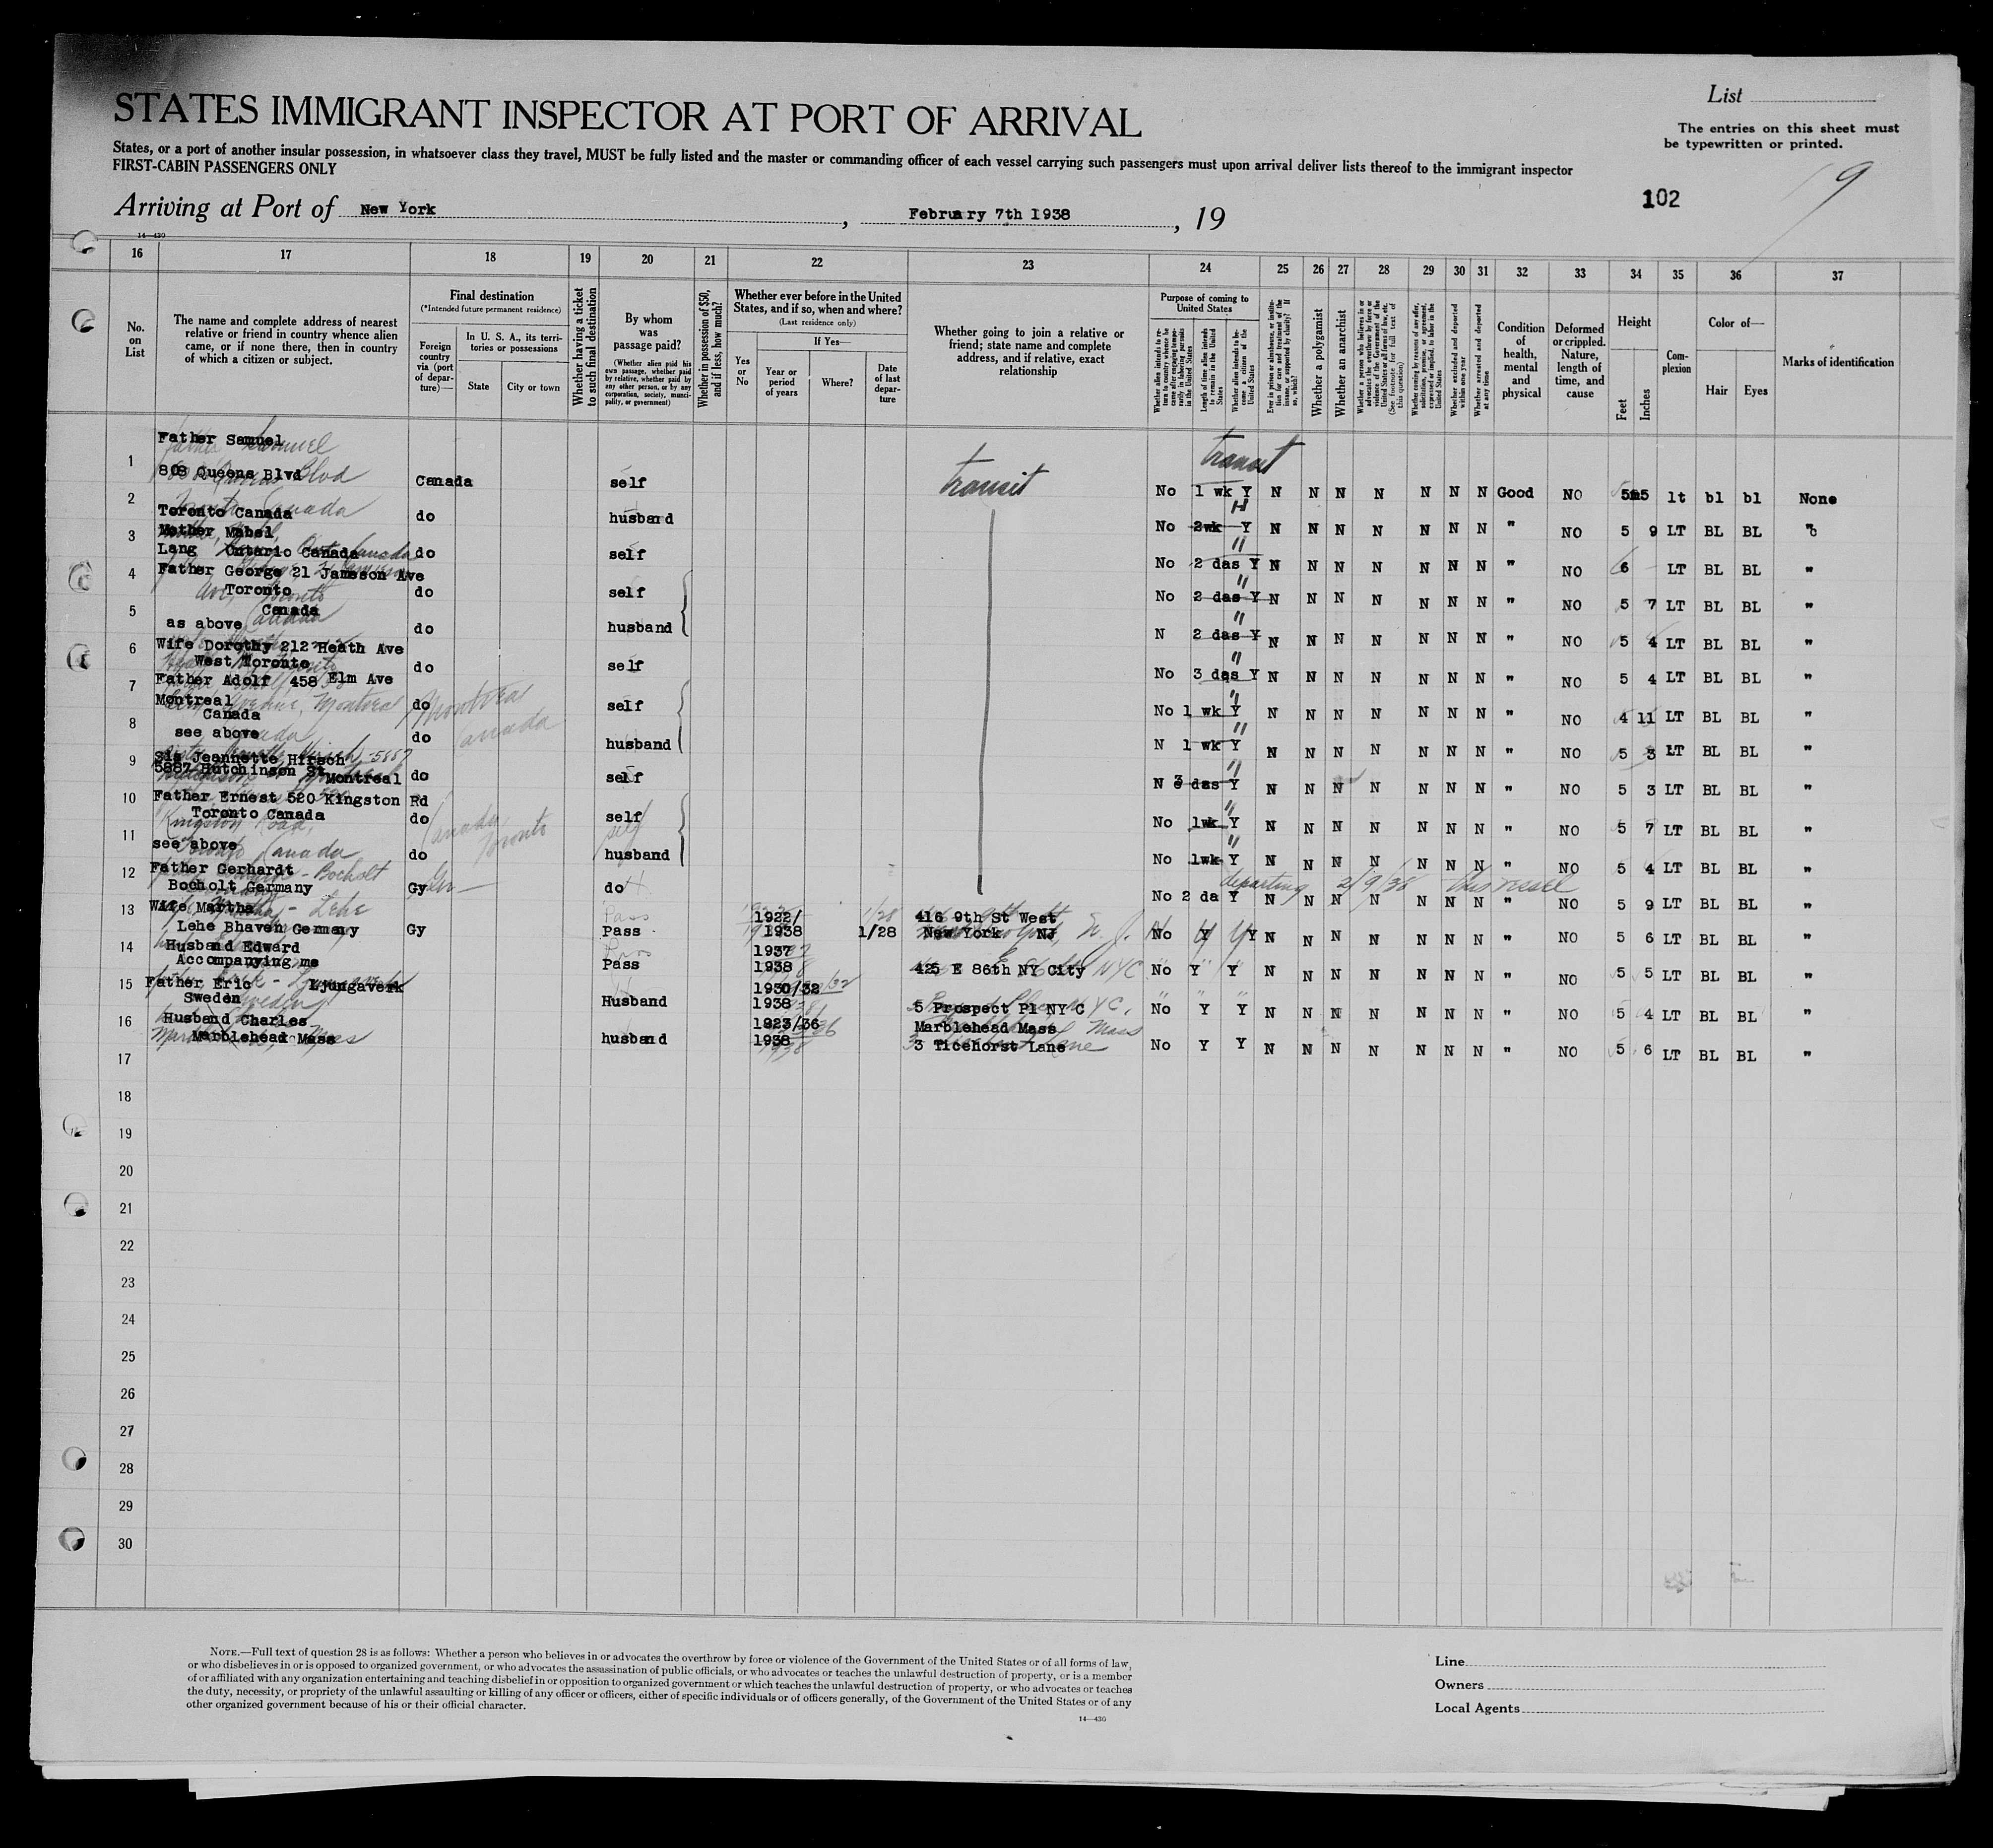 List
The entries on this sheet must
be typewritten or printed.
STATES IMMIGRANT INSPECTOR AT PORT OF ARRIVAL
States, or a port of another insular possession, in whatsoever class they travel, MUST be fully listed and the master or commanding officer of each vessel carrying such passengers must upon arrival deliver lists thereof to the immigrant inspector
FIRST-CABIN PASSENGERS ONLY
102 9
Arriving at Port of New York, February 7th 1938, 19
14—430
16 17 18 19 20 21 22 23 24 25 26 27 28 29 30 31 32 33 34 35 36 37
No. on List
The name and complete address of nearest relative or friend in country whence alien came, or if none there, then in country of which a citizen or subject.
Final destination
(*Intended future permanent residence)
Foreign country via (port of departure)—
In U. S. A., its territories or possessions
State
City or town
Whether having a ticket to such final destination
By whom was passage paid?
(Whether alien paid his own passage, whether paid by relative, whether paid by any other person, or by any corporation, society, municipality, or government)
Whether in possession of $50, and if less, how much?
Whether ever before in the United States, and if so, when and where?
(Last residence only)
Yes or No
If Yes—
Year or period of years
Where?
Date of last departure
Whether going to join a relative or friend; state name and complete address, and if relative, exact relationship
Purpose of coming to United States
Length of time alien intends to remain in the United States
Whether alien intends to become a citizen of the United States
Whether a polygamist
Whether an anarchist
Whether excluded and deported within one year
Whether arrested and deported at any time
Condition of health, mental and physical
Deformed or crippled. Nature, length of time, and cause
Height
Feet
Inches
Complexion
Color of—
Hair
Eyes
Marks of identification
Father Samuel
transit
1 808 Queens Blvd Canada self transit No 1 wk Y N N N N N N N Good NO 5 lt bl bl None
2 Toronto Canada do husband No 2wk Y N N N N N N N " NO 5 9 LT BL BL "
Mother Mabel
3 Lang Ontario Canada do self No 2 das Y N N N N N N N " NO 6 LT BL BL "
4 Father George 21 Jameson Ave
Toronto do self No 2 das Y N N N N N N N " NO 5 7 LT BL BL "
Canada
5 as above do husband N 2 das Y N N N N N N N " NO 5 4 LT BL BL "
6 Wife Dorothy 212 Heath Ave
West Toronto do self No 3 das Y N N N N N N N " NO 5 4 LT BL BL "
7 Father Adolf 458 Elm Ave
Montreal do self No 1 wk Y N N N N N N N " NO 4 11 LT BL BL "
Canada Montreal Canada
8 see above do husband N 1 wk Y N N N N N N N " NO 5 3 LT BL BL "
9 Sis Jeannette Hirsch
5887 Hutchinson St Montreal do self N 3 das Y N N N N N N N " NO 5 3 LT BL BL "
10 Father Ernest 520 Kingston Rd
Toronto Canada do self No 1wk Y N N N N N N N " NO 5 7 LT BL BL "
Canada Toronto
11 see above do husband No 1wk Y N N N N N N N " NO 5 4 LT BL BL "
12 Father Gerhardt departing 2/9/38 this vessel
Bocholt Germany Gy do No 2 da Y N N N N N N N " NO 5 9 LT BL BL "
13 Wife Martha 1922/ 416 9th St West
Lehe Bhaven Germany Gy Pass 1938 1/28 New York NJ No Y Y N N N N N N N " NO 5 6 LT BL BL "
14 Husband Edward 1937
Accompanying me Pass 1938 425 E 86th NY City No Y Y N N N N N N N " NO 5 5 LT BL BL "
15 Father Eric Ljungaverk 1930/32
Sweden Husband 1938 5 Prospect Pl NY C No Y Y N N N N N N N " NO 5 4 LT BL BL "
16 Husband Charles 1923/36 Marblehead Mass
Marblehead Mass husband 1938 3 Ticehorst Lane No Y Y N N N N N N N " NO 5 6 LT BL BL "
17
18
19
20
21
22
23
24
25
26
27
28
29
30
NOTE.—Full text of question 28 is as follows: Whether a person who believes in or advocates the overthrow by force or violence of the Government of the United States or of all forms of law,
or who disbelieves in or is opposed to organized government, or who advocates the assassination of public officials, or who advocates or teaches the unlawful destruction of property, or is a member
of or affiliated with any organization entertaining and teaching disbelief in or opposition to organized government or which teaches the unlawful destruction of property, or who advocates or teaches
the duty, necessity, or propriety of the unlawful assaulting or killing of any officer or officers, either of specific individuals or of officers generally, of the Government of the United States or of any
other organized government because of his or their official character.
14—430
Line
Owners
Local Agents